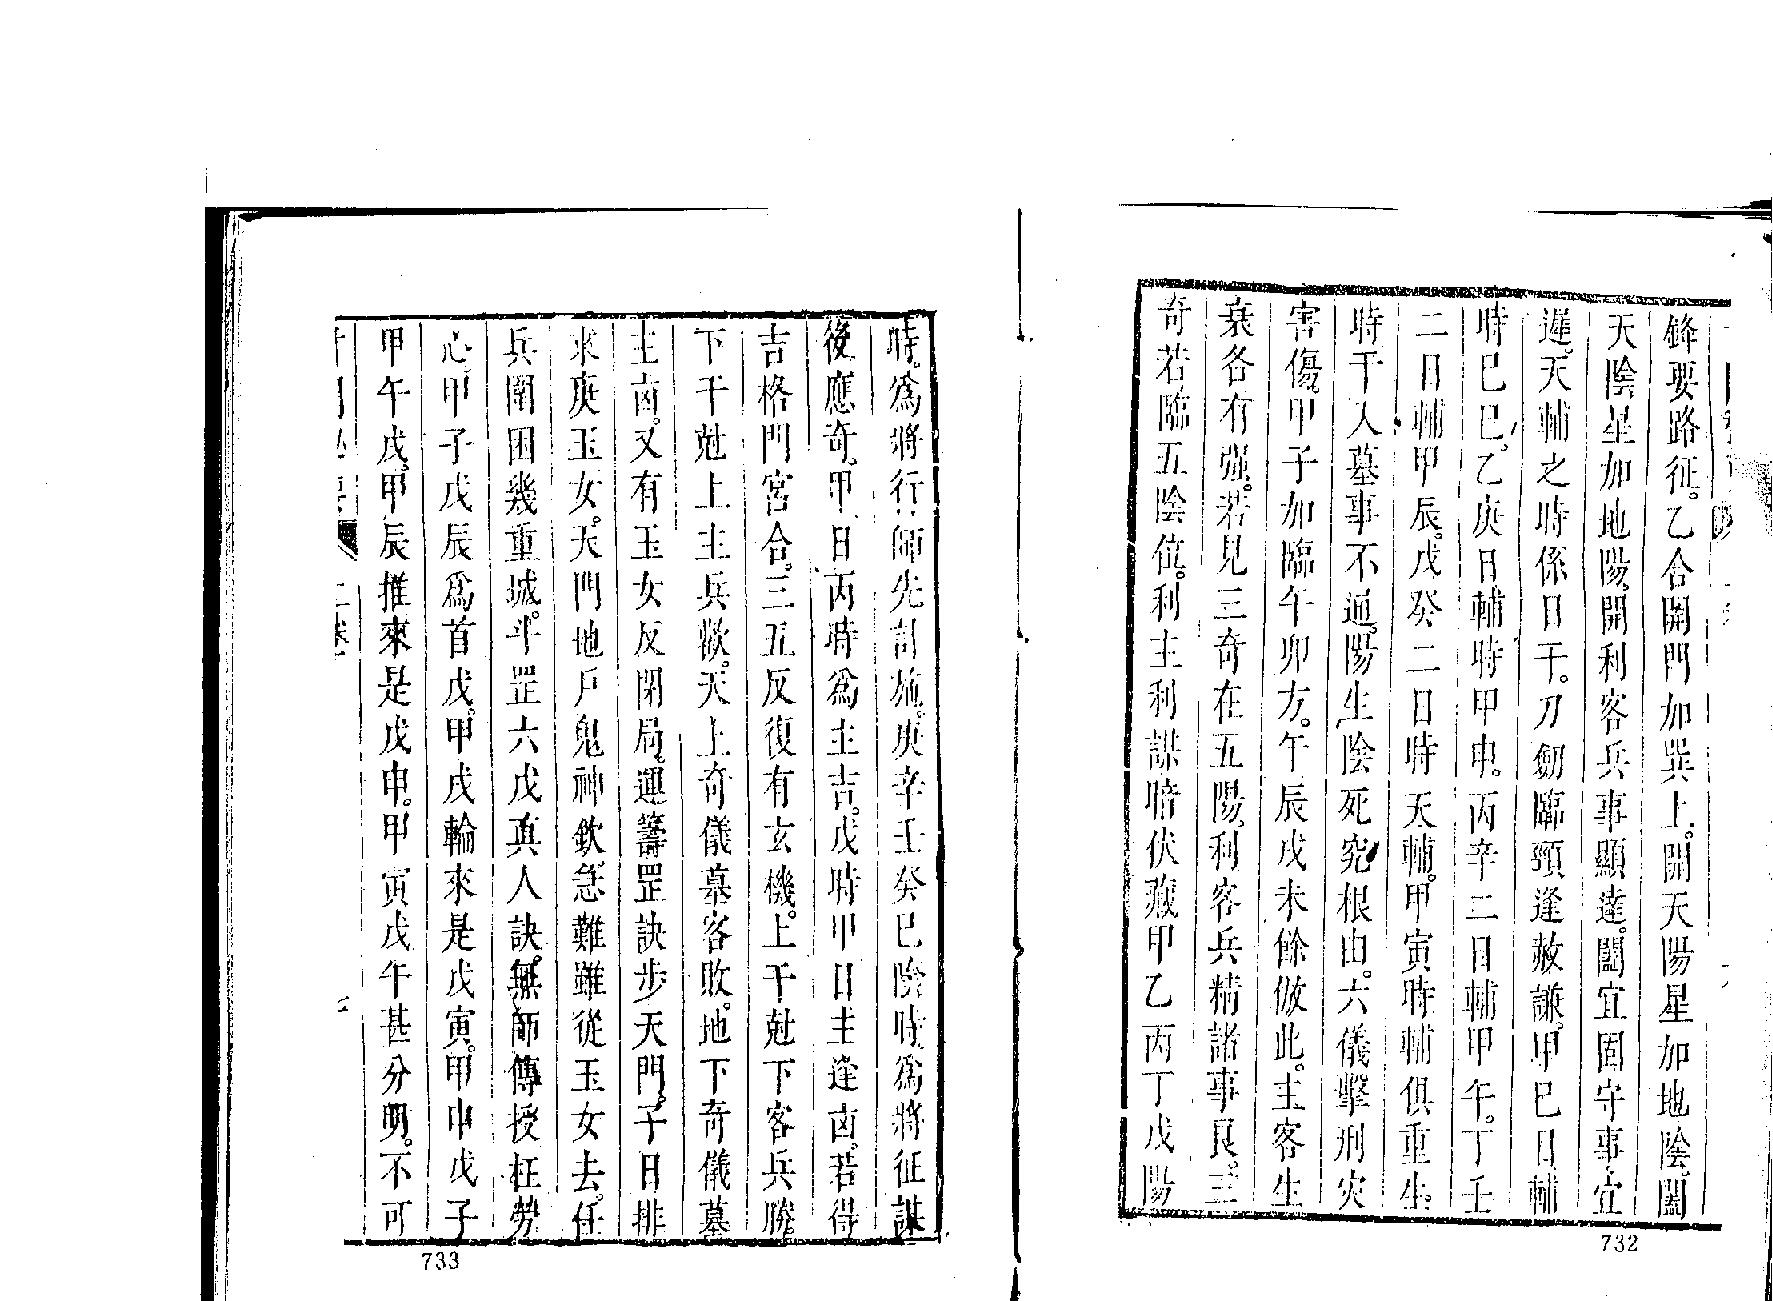 鋒要路征。乙合開門加巽上。開天陽星加地陰。闔
天陰星加地陽。開利客兵事顯達。闔宜固守事宜
遲。天輔之時係日干。刀劒臨頸逢赦謙。甲巳日輔
時巳巳。乙庚日輔時甲申。丙辛二日輔甲午。丁壬
二日輔甲辰。戊癸二日時天輔。甲寅時輔俱重生。
時干入墓事不通。陽生陰死究根由。六儀擊刑灾
害傷。甲子加臨午卯方。午辰戌未餘倣此。主客生
衰各有强。若見三奇在五陽。利客兵精諸事良。三
奇若臨五陰位。利主利謀暗伏藏。甲乙丙丁戊陽
732
時。爲將行師先討施。庚辛壬癸巳陰時。爲將征謀
後應奇。甲日丙時爲主吉。戊時甲日主逢凶。若得
吉格門宮合。三五反復有玄機。上干尅下客兵勝。
下干尅上主兵歡。天上奇儀墓客敗。地下奇儀墓
主凶。又有玉女反閉局。運籌罡訣步天門。子日排
來庚玉女。天門地戶鬼神欽。急難雖從玉女去。任
兵圍困幾重城。斗罡六戊眞人訣。無師傳授枉勞
心。甲子戊辰爲首戊。甲戌輪來是戊寅。甲申戊子
甲午戊。甲辰推來是戊申。甲寅戊午甚分明。不可
733